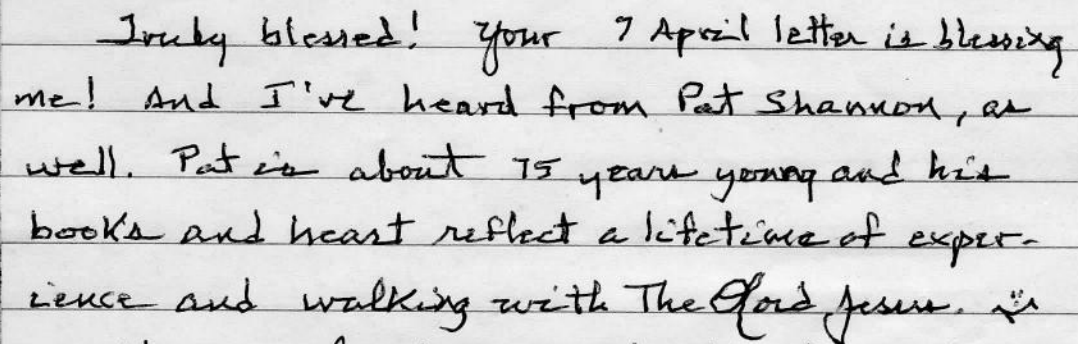 Truly blessed! Your 7 April letter is blessing
me! And I've heard from Pat Shannon, as
well. Pat is about 75 years young and his
books and heart reflect a lifetime of exper-
ience and walking with The Lord Jesus.